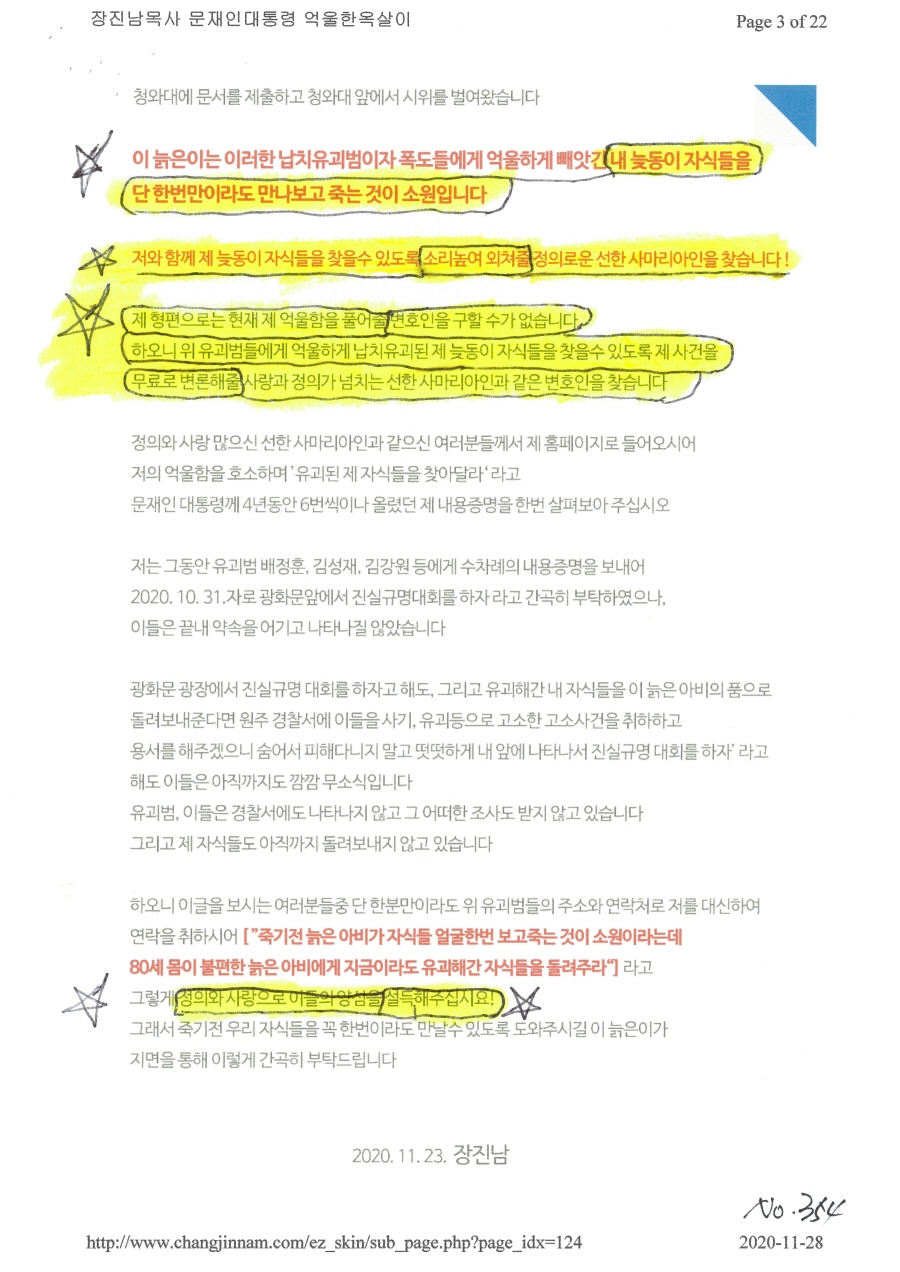 장진남목사 문재인대통령 억울한옥살이
Page 3 of 22
청와대에 문서를 제출하고 청와대 앞에서 시위를 벌여왔습니다
이 늙은이는 이러한 납치유괴범이자 폭도들에게 억울하게 빼앗긴 내 늦둥이 자식들을
단 한번만이라도 만나보고 죽는 것이 소원입니다
저와 함께 제 늦동이 자식들을 찾을수 있도록 소리높여 외쳐줄 정의로운 선한 사마리아인을 찾습니다 !
제 형편으로는 현재 제 억울함을 풀어줄 변호인을 구할 수가 없습니다
하오니 위 유괴범들에게 억울하게 납치유괴된 제 늦동이 자식들을 찾을수 있도록 제 사건을
무료로 변론해줄 사랑과 정의가 넘치는 선한 사마리아인과 같은 변호인을 찾습니다
정의와 사랑 많으신 선한 사마리아인과 같으신 여러분들께서 제 홈페이지로 들어오시어
저의 억울함을 호소하며 '유괴된 제 자식들을 찾아달라' 라고
문재인 대통령께 4년동안 6번씩이나 올렸던 제 내용증명을 한번 살펴보아 주십시오
저는 그동안 유괴범 배정훈, 김성재, 김강원 등에게 수차례의 내용증명을 보내어
2020. 10. 31.자로 광화문앞에서 진실규명대회를 하자 라고 간곡히 부탁하였으나,
이들은 끝내 약속을 어기고 나타나질 않았습니다
광화문 광장에서 진실규명 대회를 하자고 해도, 그리고 유괴해간 내 자식들을 이 늙은 아비의 품으로
돌려보내준다면 원주 경찰서에 이들을 사기, 유괴등으로 고소한 고소사건을 취하하고
용서를 해주겠으니 숨어서 피해다니지 말고 떳떳하게 내 앞에 나타나서 진실규명 대회를 하자' 라고
해도 이들은 아직까지도 깜깜 무소식입니다
유괴범, 이들은 경찰서에도 나타나지 않고 그 어떠한 조사도 받지 않고 있습니다
그리고 제 자식들도 아직까지 돌려보내지 않고 있습니다
하오니 이글을 보시는 여러분들중 단 한분만이라도 위 유괴범들의 주소와 연락처로 저를 대신하여
연락을 취하시어 ["죽기전 늙은 아비가 자식들 얼굴한번 보고죽는 것이 소원이라는데
80세 몸이 불편한 늙은 아비에게 지금이라도 유괴해간 자식들을 돌려주라"] 라고
그렇게 정의와 사랑으로 이들의 양심을 설득해주십시요!
그래서 죽기전 우리 자식들을 꼭 한번이라도 만날수 있도록 도와주시길 이 늙은이가
지면을 통해 이렇게 간곡히 부탁드립니다
2020. 11. 23. 장진남
No. 354
http://www.changjinnam.com/ez_skin/sub_page.php?page_idx=124
2020-11-28